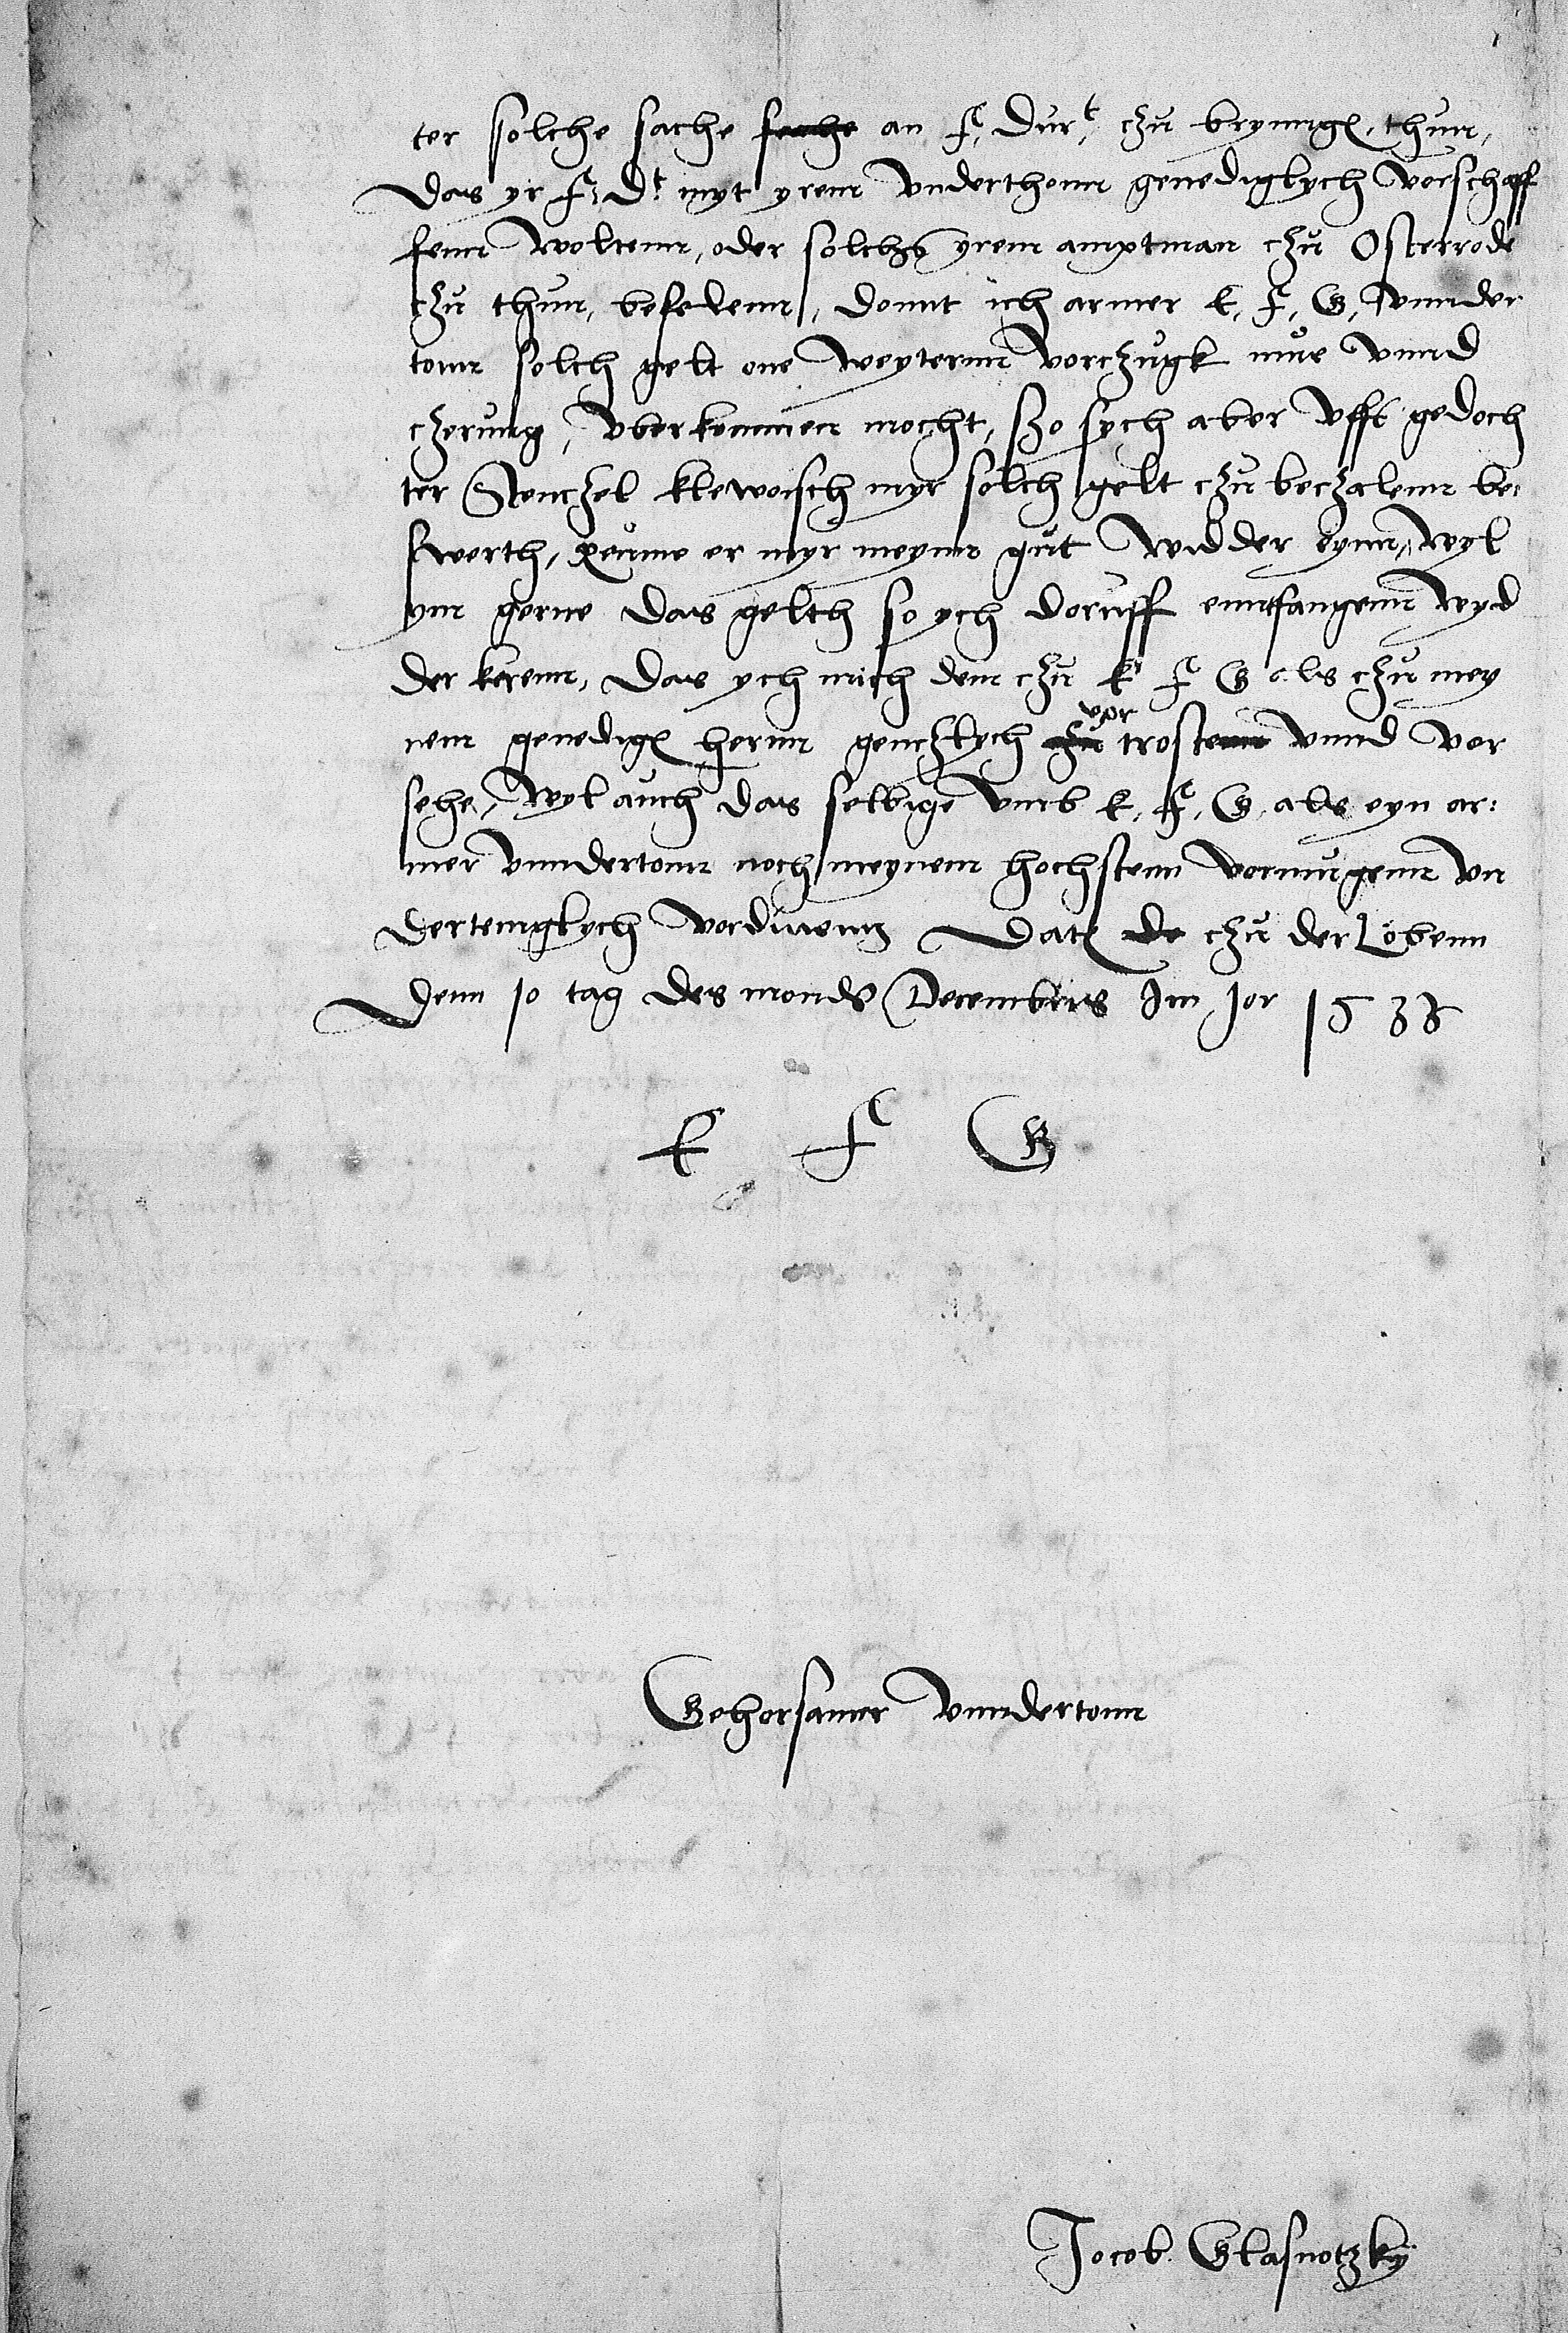 ter solche sache sache an f. Durt. czu bryngen thun,
das yr f. Dt. myt yrem vnderthonn genediglych vorschaff
fenn woltenn, oder solchs yrem amptman czu Osterrode
czu thun, befelenn, domit ich armer E. F. G. vnnder
tonn solch gelt one weyternn vorczugk mue vnnd
czerung, vberkommen mocht, szo sych aber vfft gedoch
ter Stenczel klewoisch myr solch gelt czu beczalenn be
swerth, reume er myr meynn gut widder eynn, wyl
ym gerne das gelth so ych doruff enntfangenn wyd
der kerenn, das ych mich denn czu E F G als czu mey
nem genedigen hernn genczlych czu vor trostenn vnnd vor
sehe, wyl auch das selbige vmb E. F. G. als eyn ar
mer vnndertonn noch meynem hochstenn vormugenn vn
dertenigklych vordinenn Daten de czu der Löbenn
Denn 10 tag des monds Decembris Im Jor 1538
E F G
Gehorsamer vnndertonn
Jocob Glasnotzky